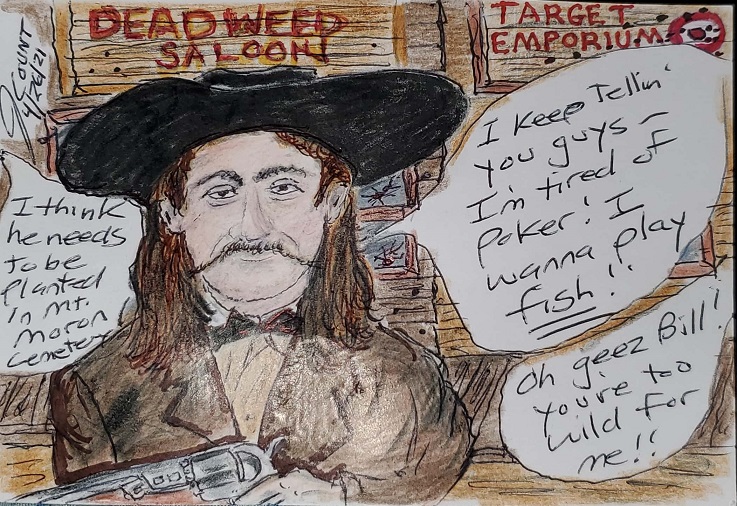 DEADWEED
SALOON!
TARGET
EMPORIUM
J COUNT
4/26/21
I think
he needs
to be
planted
in mt.
moron
cemetery
I keep Tellin'
you guys -
I'm tired of
poker! I
wanna play
fish!!
Oh geez Bill!
you're too
wild for
me!!